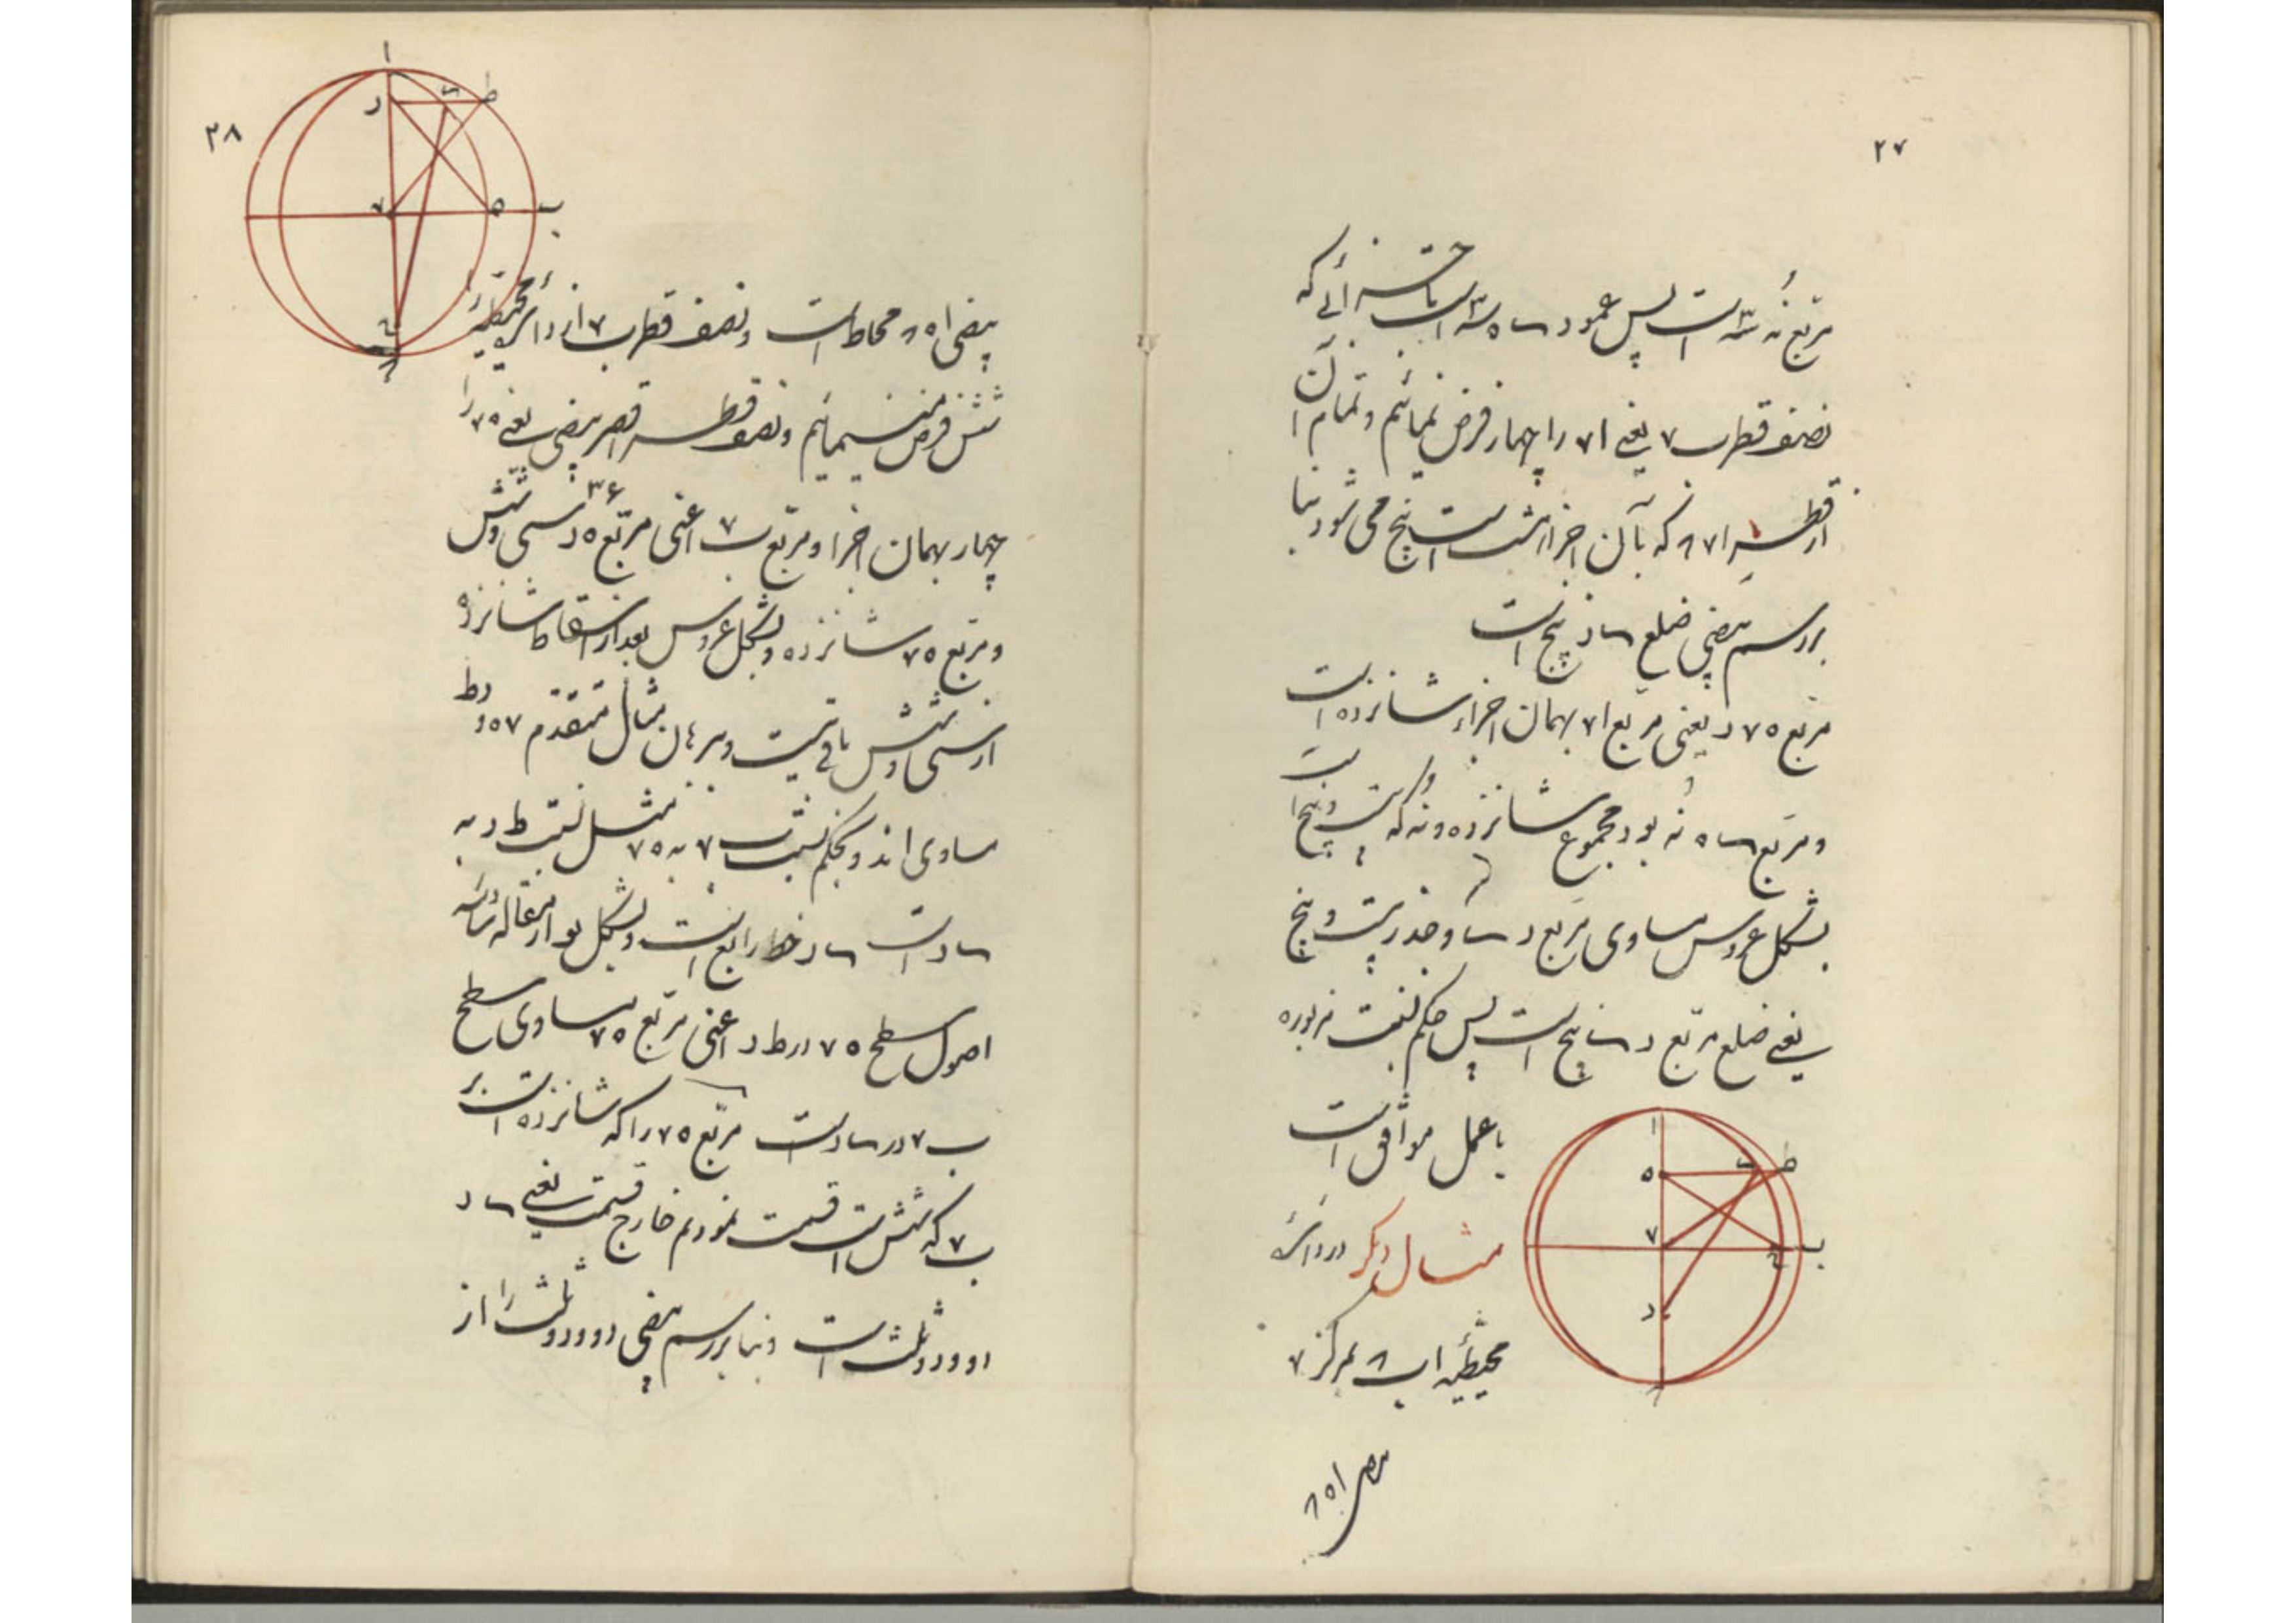 ۲۷
مربع نه ۳ است پس عمود ے ه ۳ است باجزائی که
نصف قطر ب ۷ یعنی ا ۷ را چهار فرض نمائیم و تمام آن
از قطر ا ۷ ۸ که بآن اجزا هشت است پنج می شود بنا
بر رسم بیضی ضلع ے د پنج است
مربع ه ۷ د یعنی مربع ا ۷ بهمان اجزاء شانزده است
و مربع ے ه نه بود و مجموع شانزده و نه که بیست و پنج است
بشکل عروس مساوی مربع د ے و جذر بیست و پنج
یعنی ضلع مربع د ے پنج است پس حکم نسبت مزبوره
با عمل موافق است
مثال دیگر در دائرهٔ
محیطیه ا ب ۸ بمرکز ۷
بیضی ا ه ۸
ا
ه
ے
ط
۷
ب
د
۸
۲۸
ا
د
ے
ط
۷
ه
ب
۸
بیضی ا ه ۸ محاط است و نصف قطر ب ۷ از دائرهٔ محیطیه را
شش فرض مینمائیم و نصف قطر اقصر بیضی یعنی ه ۷ را
چهار بهمان اجزا و مربع ب ۷ اعنی مربع ه د سی و شش ۳۶
و مربع ه ۷ شانزده و بشکل عروس بعد از اسقاط شانزده
از سی و شش باقی بیست و برهان مثال متقدم ه ۷ و د ط
مساوی اند و بحکم نسبت ب ۷ به ه ۷ مثل نسبت ط د به
ے د است ے د خط رابع است و بشکل یو از مقاله سادسه
اصول سطح ه ۷ در ط د اعنی مربع ه ۷ مساوی سطح
ب ۷ در ے د است مربع ه ۷ را که شانزده است بر
ب ۷ که شش است قسمت نمودیم خارج قسمت یعنی ے د
دو و دو ثلث است و بنا بر رسم بیضی دو و دو ثلث را از